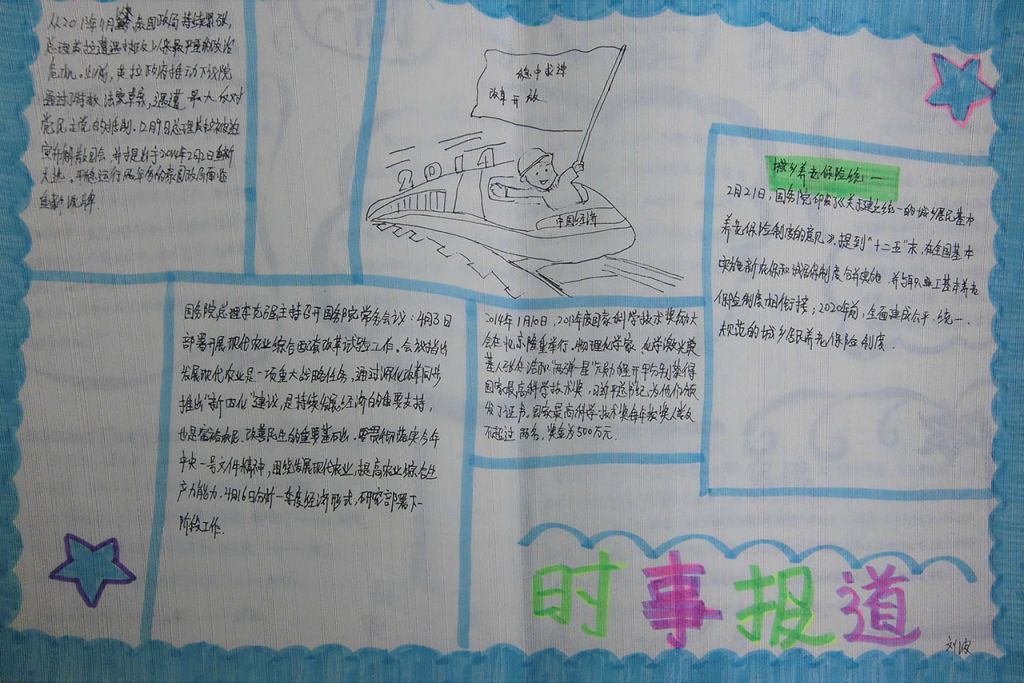 从2013年4月泰国政局持续紧张,
危机。此前,英拉政府推动下议院
通过了特赦法案草案,遭遇最大反对
党民主党的抵制。12月9日总理英拉被迫
宣布解散国会,并于2014年2月2日重新
大选。
稳中求进
改革开放
2014
中国经济
城乡养老保险统一
2月21日,国务院印发了《关于建立统一的城乡居民基本
养老保险制度的意见》。提到"十二五"末,在全国基本
实现新农保和城居保制度合并实施,并与职工基本养老
保险制度相衔接;2020年前,全面建成公平、统一、
规范的城乡居民养老保险制度.
国务院总理李克强主持召开国务院常务会议:4月3日
部署开展现代农业综合配套改革试验工作。会议指出
发展现代农业是一项重大战略任务,通过深化改革同步
推出"新四化"建设,是持续发展经济的重要支持,
也是富裕农民、改善民生的重要基石。要贯彻落实今年
中央一号文件精神,围绕发展现代农业,提高农业综合生
产力能力。4月16日分析一季度经济形式,研究部署下一
阶段工作.
2014年1月10日,2013年度国家科学技术奖励大
会在北京隆重举行。物理化学家、化学激光奠
基人张存浩和"两弹一星"元勋程开甲分别获得
国家最高科学技术奖,习近平总书记为他们颁
发了证书。国家最高科学技术奖每年获奖人数
不超过两名,奖金为500万元.
时事报道
刘波